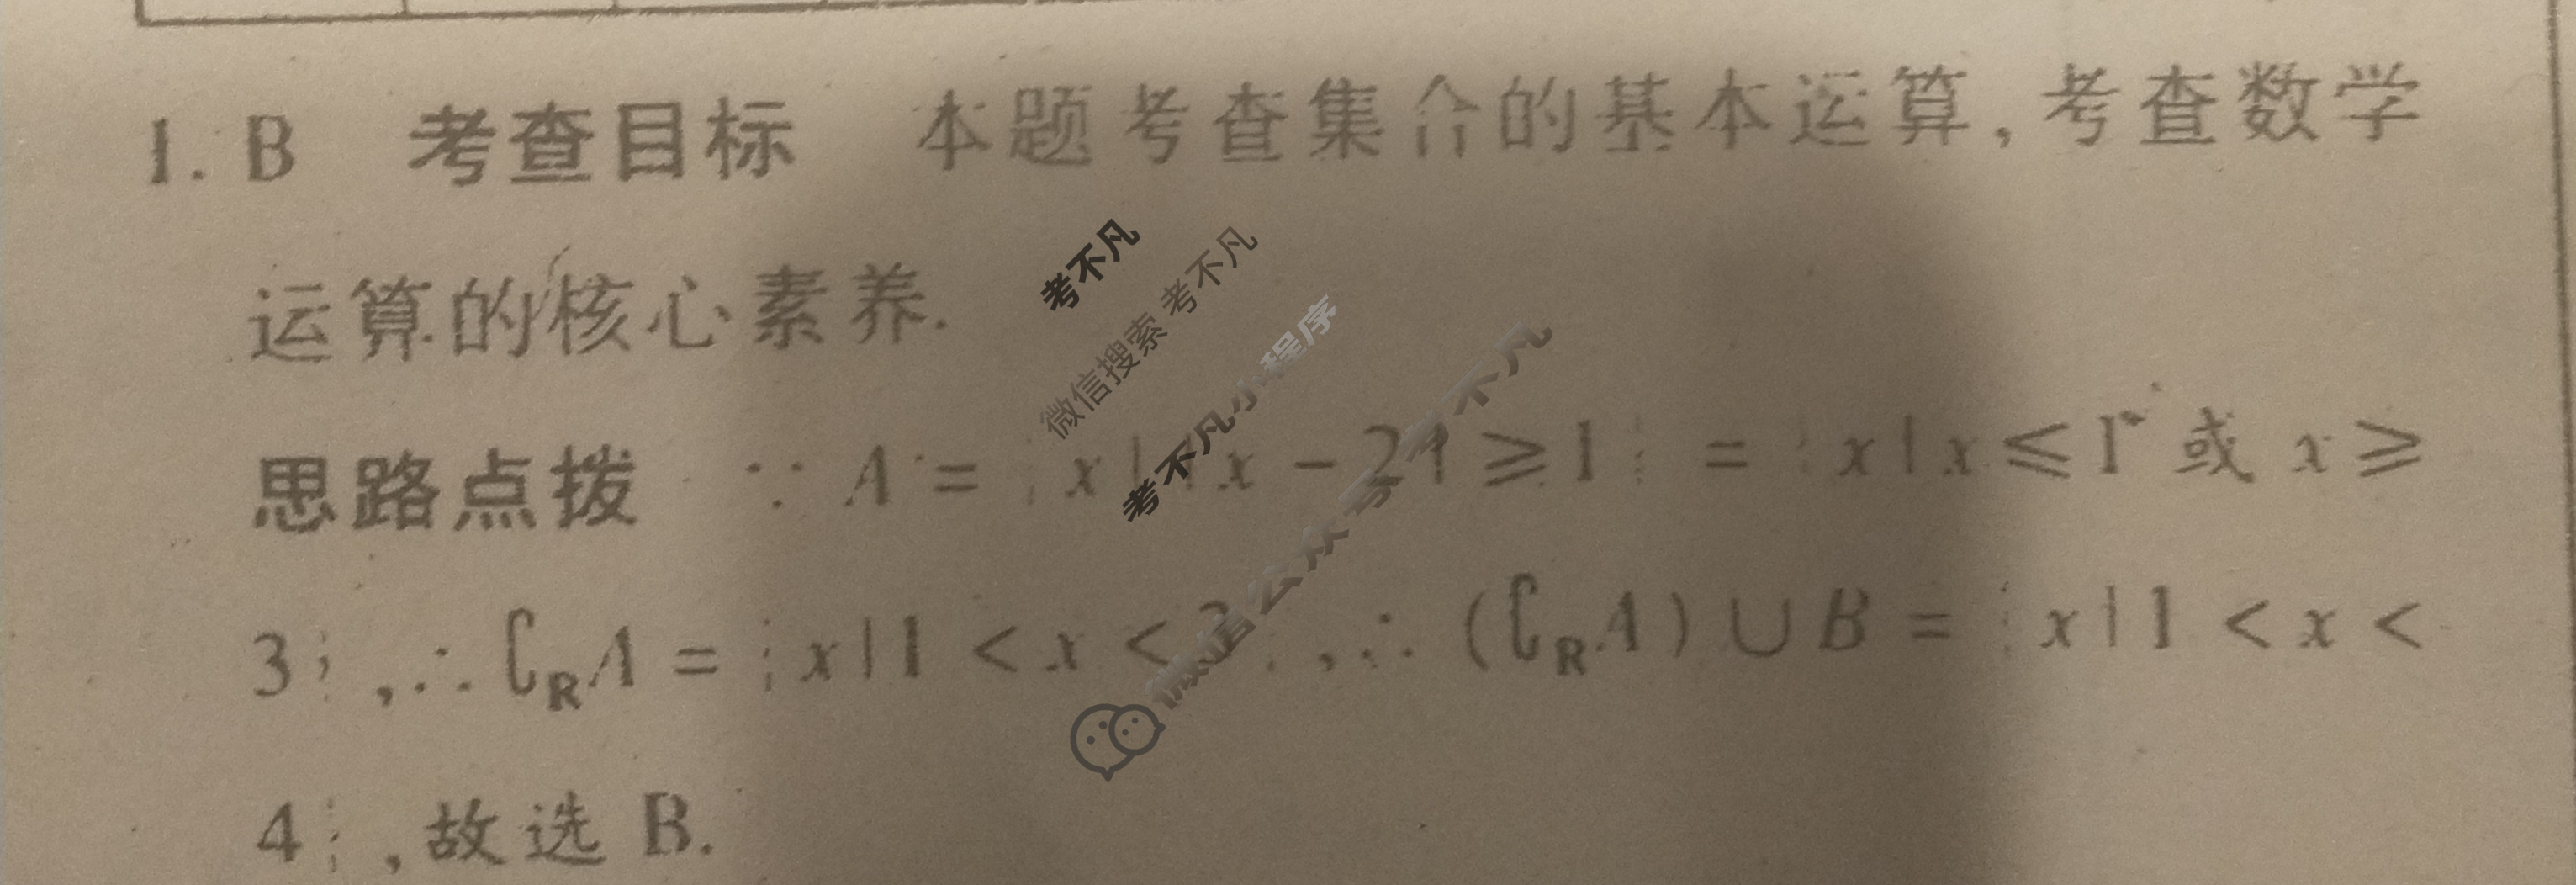 1. B 考查目标 本题考查集合的基本运算,考查数学
运算的核心素养.
思路点拨 ∵ A = {x||x-2|≥1} = {x|x≤1 或 x≥
3},∴∁RA = {x|1<x<3},∴(∁RA)∪B = {x|1<x<
4},故选 B.
考不凡
微信搜索 考不凡
考不凡小程序
微信公众号 考不凡